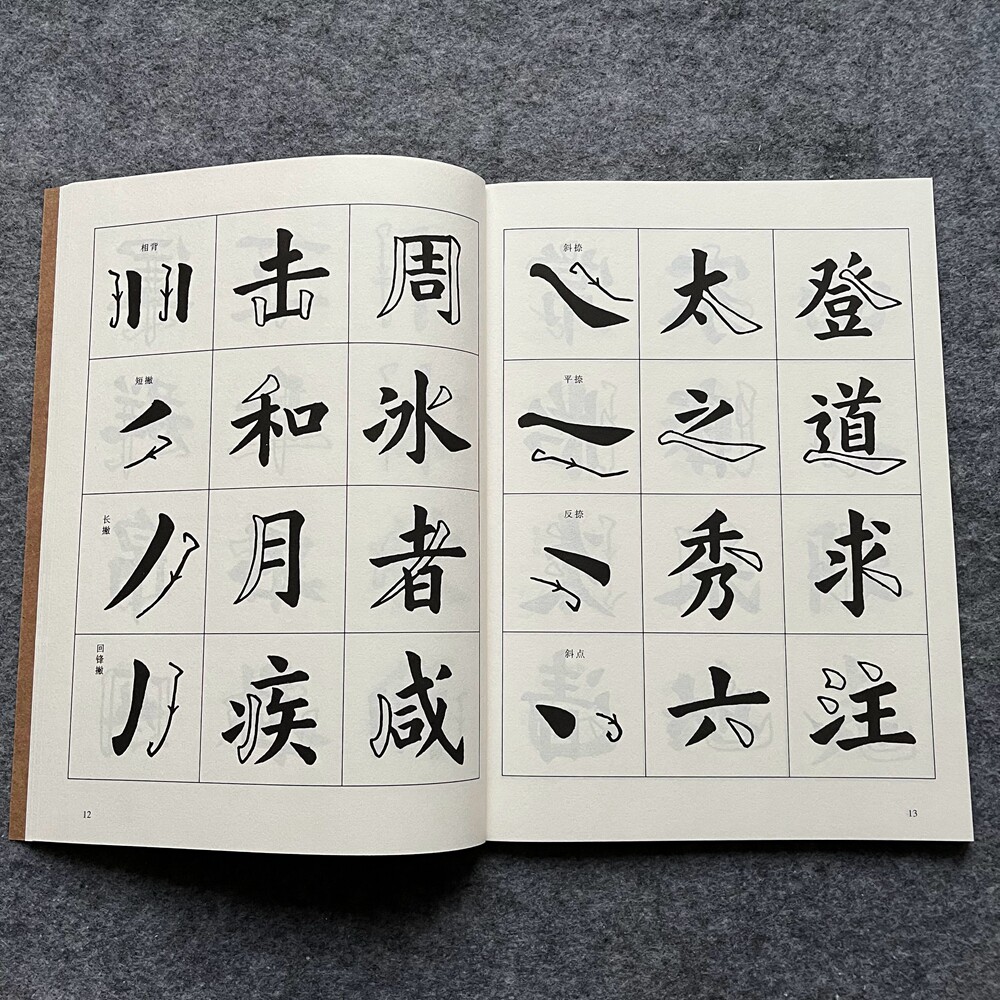 相背 击 周
短撇 和 冰
长撇 月 者
回锋撇 疾 咸
12
斜捺 太 登
平捺 之 道
反捺 秀 求
斜点 六 注
13